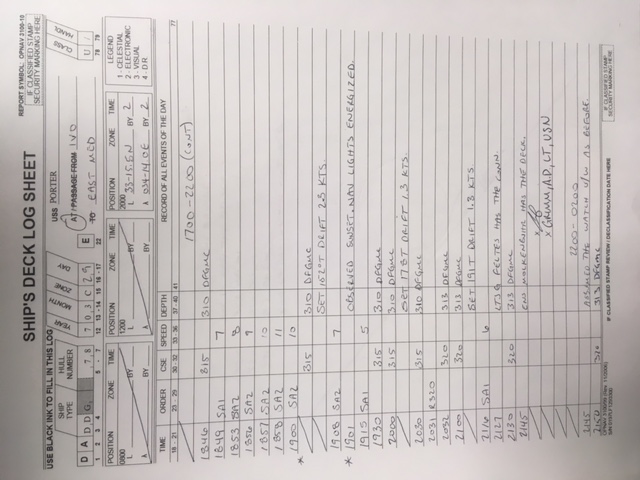 SHIP'S DECK LOG SHEET
REPORT SYMBOL: OPNAV 3100-10
IF CLASSIFIED STAMP
SECURITY MARKING HERE
USE BLACK INK TO FILL IN THIS LOG
SHIP TYPE HULL NUMBER YEAR MONTH ZONE DAY
D A D D G 78 7 03 C 29 E
1 2 3 4 5 - 7 12 13 -14 15 16-17 22
USS PORTER
AT / PASSAGE FROM IVO
TO EAST MED
CLASS HANDL
U /
78 79
POSITION ZONE TIME
0800
L BY
λ BY
POSITION ZONE TIME
1200
L BY
λ BY
POSITION ZONE TIME
2000
L 33-15.5N BY 2
λ 034-14.0E BY 2
LEGEND
1 - CELESTIAL
2 - ELECTRONIC
3 - VISUAL
4 - D.R.
TIME ORDER CSE SPEED DEPTH RECORD OF ALL EVENTS OF THE DAY
18 - 21 23 - 29 30 - 32 33 - 36 37 - 40 41 77
1700-2200 (CONT)
1846 315 310 DFGMC
1849 SA1 7
1853 SA2 8
1856 SA2 9
1857 SA2 10
1858 SA2 11
1900 SA2 10
* 315 310 DFGMC
SET 162°T DRIFT 2.3 KTS.
1908 SA2 7
* 1901 OBSERVED SUNSET. NAV LIGHTS ENERGIZED.
1915 SA1 5
1930 315 310 DFGMC
2000 315 310 DFGMC
SET 178T DRIFT 1.3 KTS.
2030 315 310 DFGMC
2031 R320
2032 320 313 DFGMC
2100 320 313 DFGMC
SET 191T DRIFT 1.8 KTS.
2116 SA1 6
2127 LTJG FELTES HAS THE CONN.
2130 320 313 DFGMC
2145 ENS HAS THE DECK.
x
x GRIMM, A.D, LT, USN
2200-0200
2145 ASSUMED THE WATCH U/W AS BEFORE.
2150 320 313 DFGMC
OPNAV 3100/99 (Rev. 11/2006)
IF CLASSIFIED STAMP REVIEW / DECLASSIFICATION DATE HERE
IF CLASSIFIED STAMP
SECURITY MARKING HERE